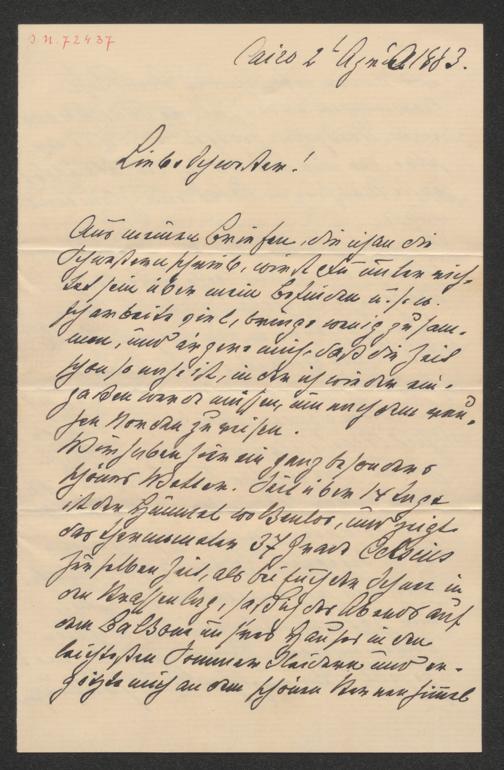 J.N. 72437
Cairo 2t April 1883.
Liebe Schwester!
Aus meinen Briefen, die ich an die
Schwestern schrieb, wirst Du unterrich-
tet sein über mein Befinden u. s. w.
Ich arbeite viel, bringe wenig zusam-
men, und ärgere mich, daß die Zeit
schon so nahe ist, in der ich wieder ein-
packen werde müssen, um nach dem
Norden zu reisen.
Wir haben hier ein ganz besonders
schönes Wetter. Seit über 14 Tage
ist der Himmel wolkenlos, und zeigt
das Thermometer 37 Grade Celsius
zur selben Zeit, als bei Euch der Schnee in
den Straßen lag, saß ich des Abends auf
dem Balkone unseres Hauses in den
leichtesten Sommerkleidern und er-
götzte mich an dem schönen Sternenhimmel